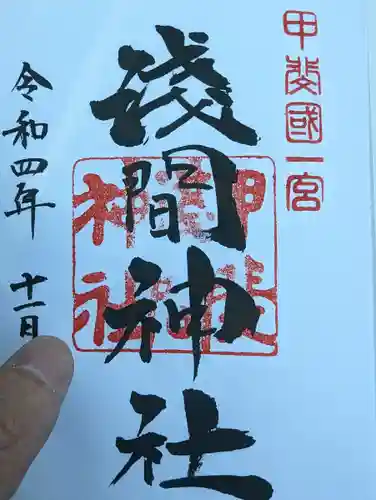 甲斐國一宮
淺間神社
令和四年 十一日